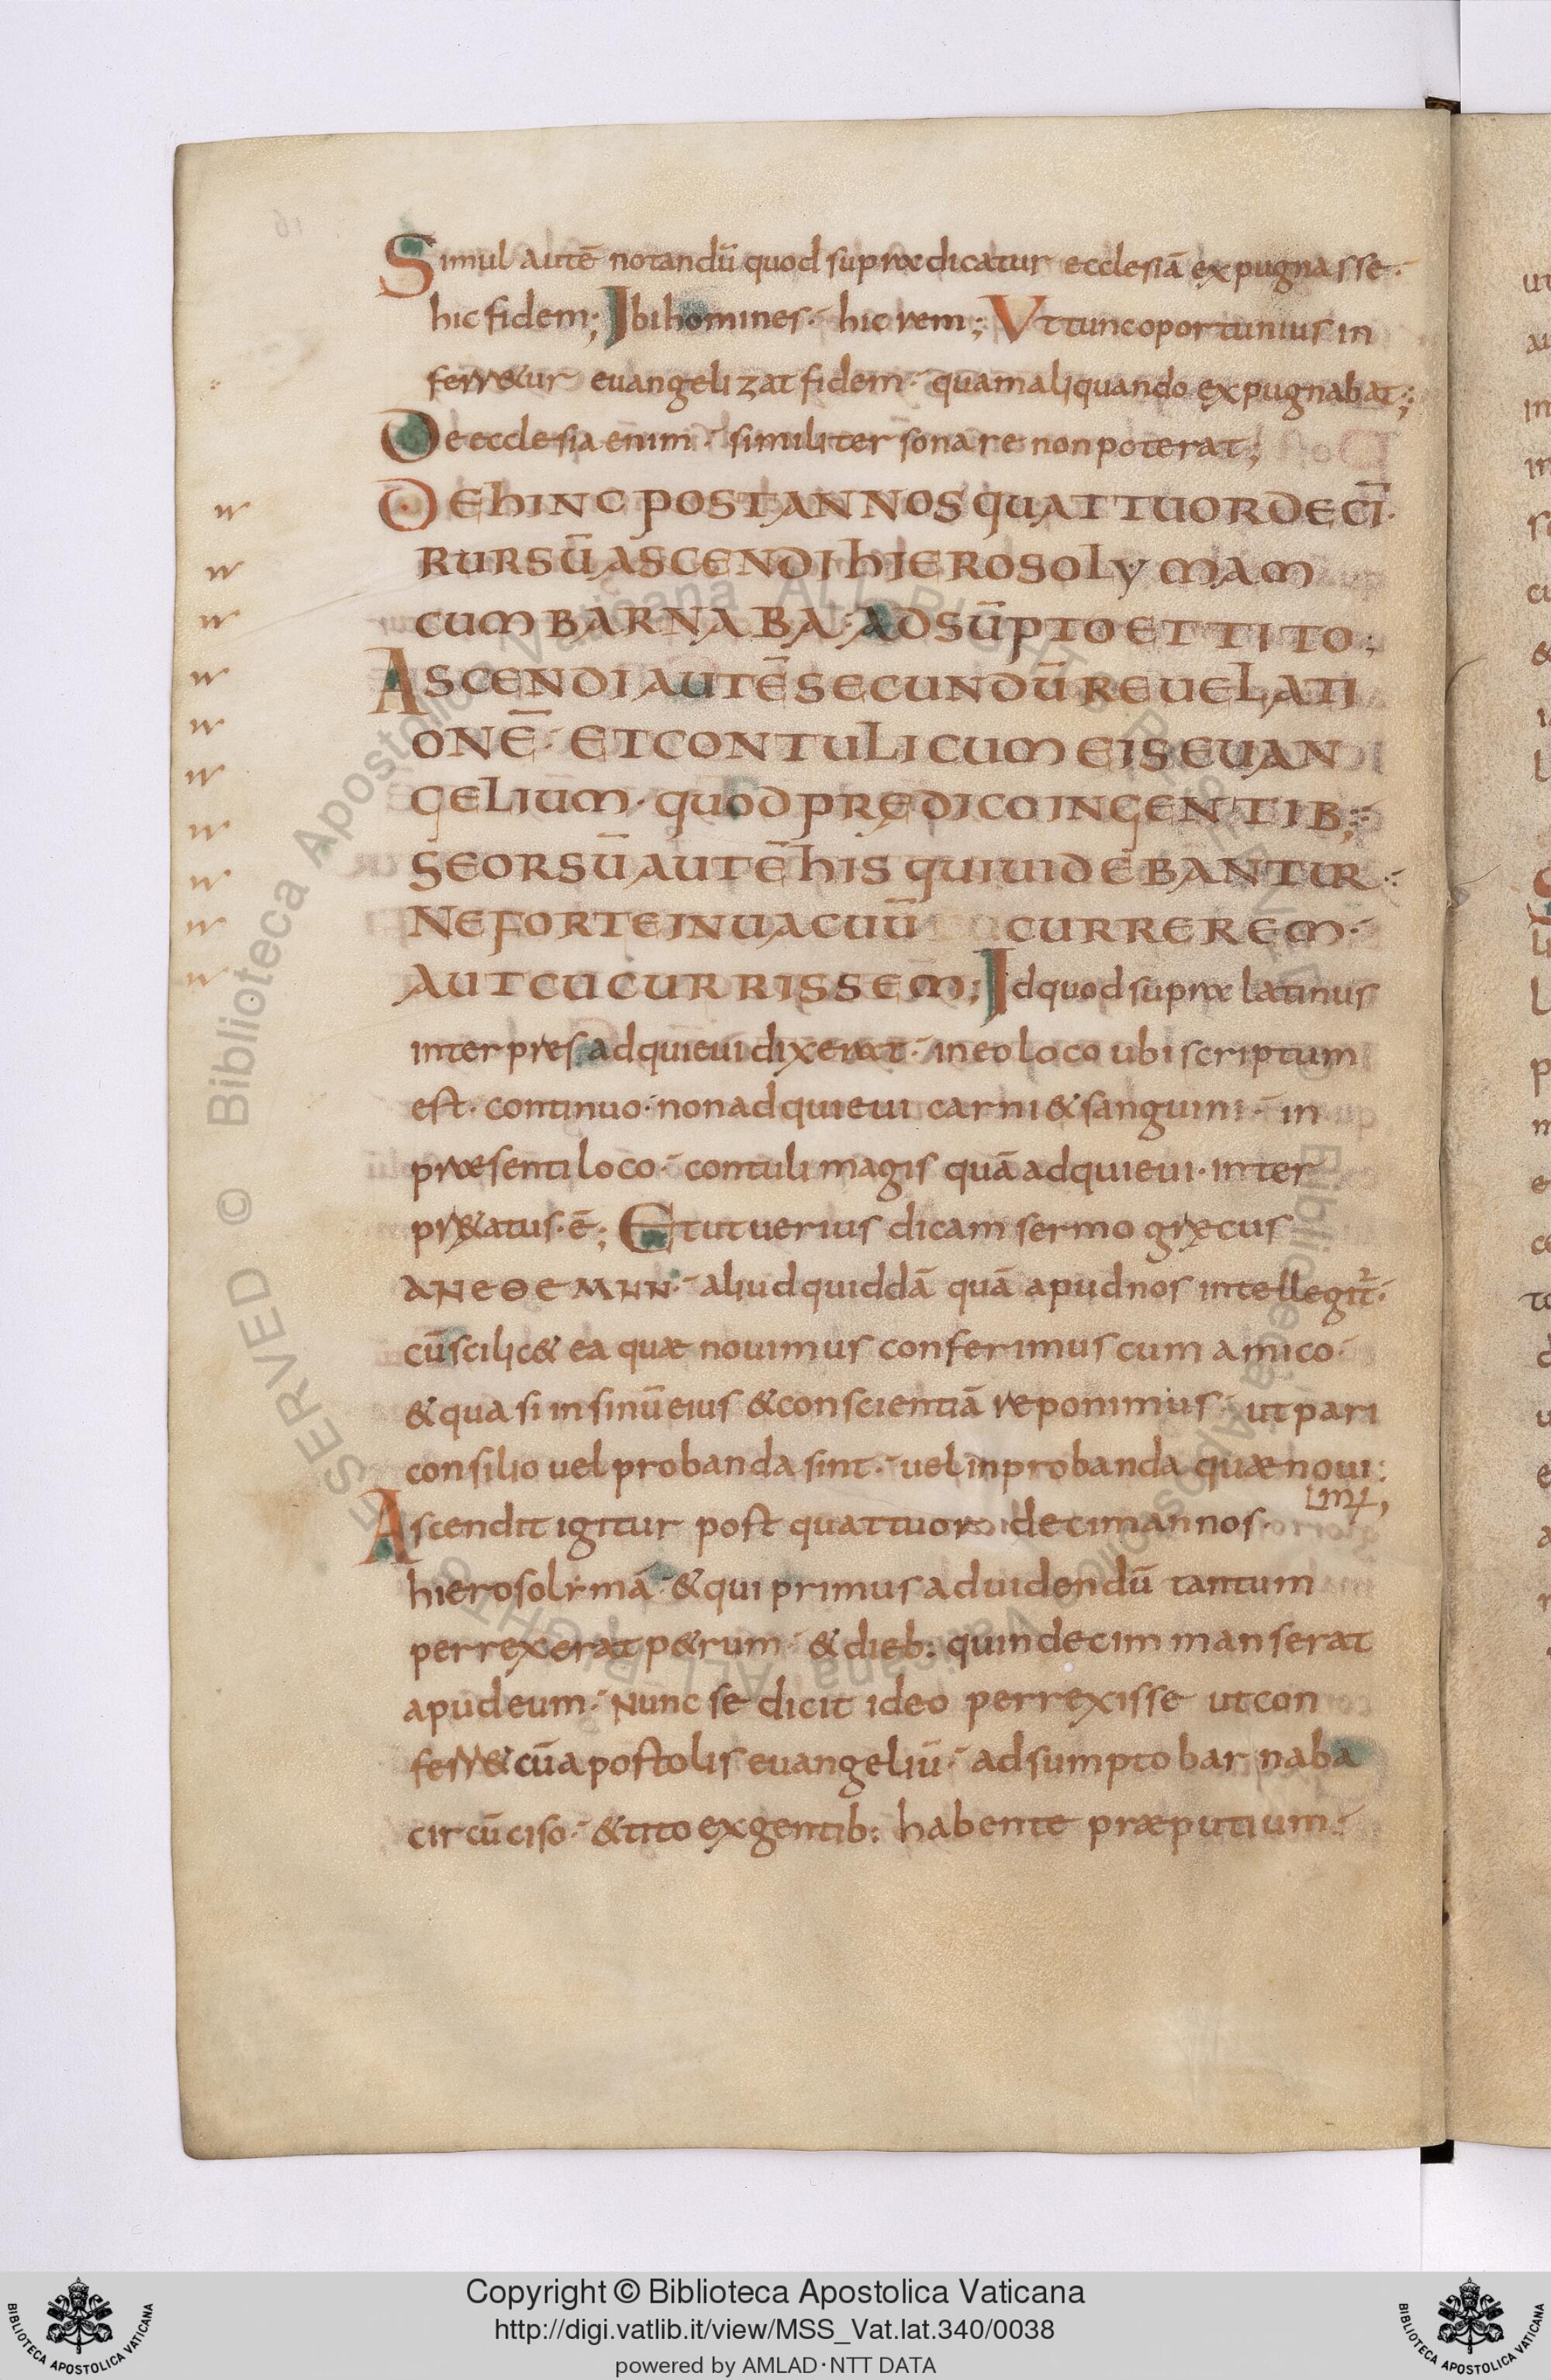 Simul autē notandū quod supra dicatur ecclesiā expugnasse·
hic fidem; Ibi homines· hic rem; Ut tunc oportunius in
ferr&ur euangelizat fidem· quam aliquando expugnabat;
De ecclesia enim· similiter sonare non poterat;
DEHINC POST ANNOS QUATTUORDECĪ·
RURSŪ ASCENDI HIEROSOLYMAM
CUM BARNABA· ADSŪPTO ET TITO;
ASCENDI AUTĒ SECUNDŪ REUELATI
ONĒ· ET CONTULI CUM EIS EUAN
GELIUM· QUOD PRĘDICO IN GENTIB;
SEORSŪ AUTĒ HIS QUI UIDEBANTUR·
NE FORTE IN UACUŪ CURREREM·
AUT CUCURRISSEM; Id quod supra latinus
interpres adquieui dixerat· in eo loco ubi scriptum
est· continuo· non adquieui carni & sanguini· in
præsenti loco· contuli magis quā adquieui· inter
pr&atus· ē; Et ut uerius dicam sermo grecus
ΑΝΕΘΕΜΗΝ· aliud quiddā quā apud nos intellegit̄·
cū scilic& ea quæ nouimus conferimus cum amico·
& quasi in sinū eius & conscientiā reponimus· ut pari
consilio uel probanda sint· uel inprobanda quæ noui
Ascendit igitur post quattuor decim annos·
hierosolymā· & qui primus ad uidendū tantum
perrexerat p&rum· & dieb: quindecim manserat
apud eum· Nunc se dicit ideo perrexisse ut con
ferr& cū apostolis euangeliū· adsumpto barnaba
circūciso· & tito ex gentib: habente præputium·
Copyright © Biblioteca Apostolica Vaticana
http://digi.vatlib.it/view/MSS_Vat.lat.340/0038
powered by AMLAD·NTT DATA
BIBLIOTECA APOSTOLICA VATICANA
BIBLIOTECA APOSTOLICA VATICANA